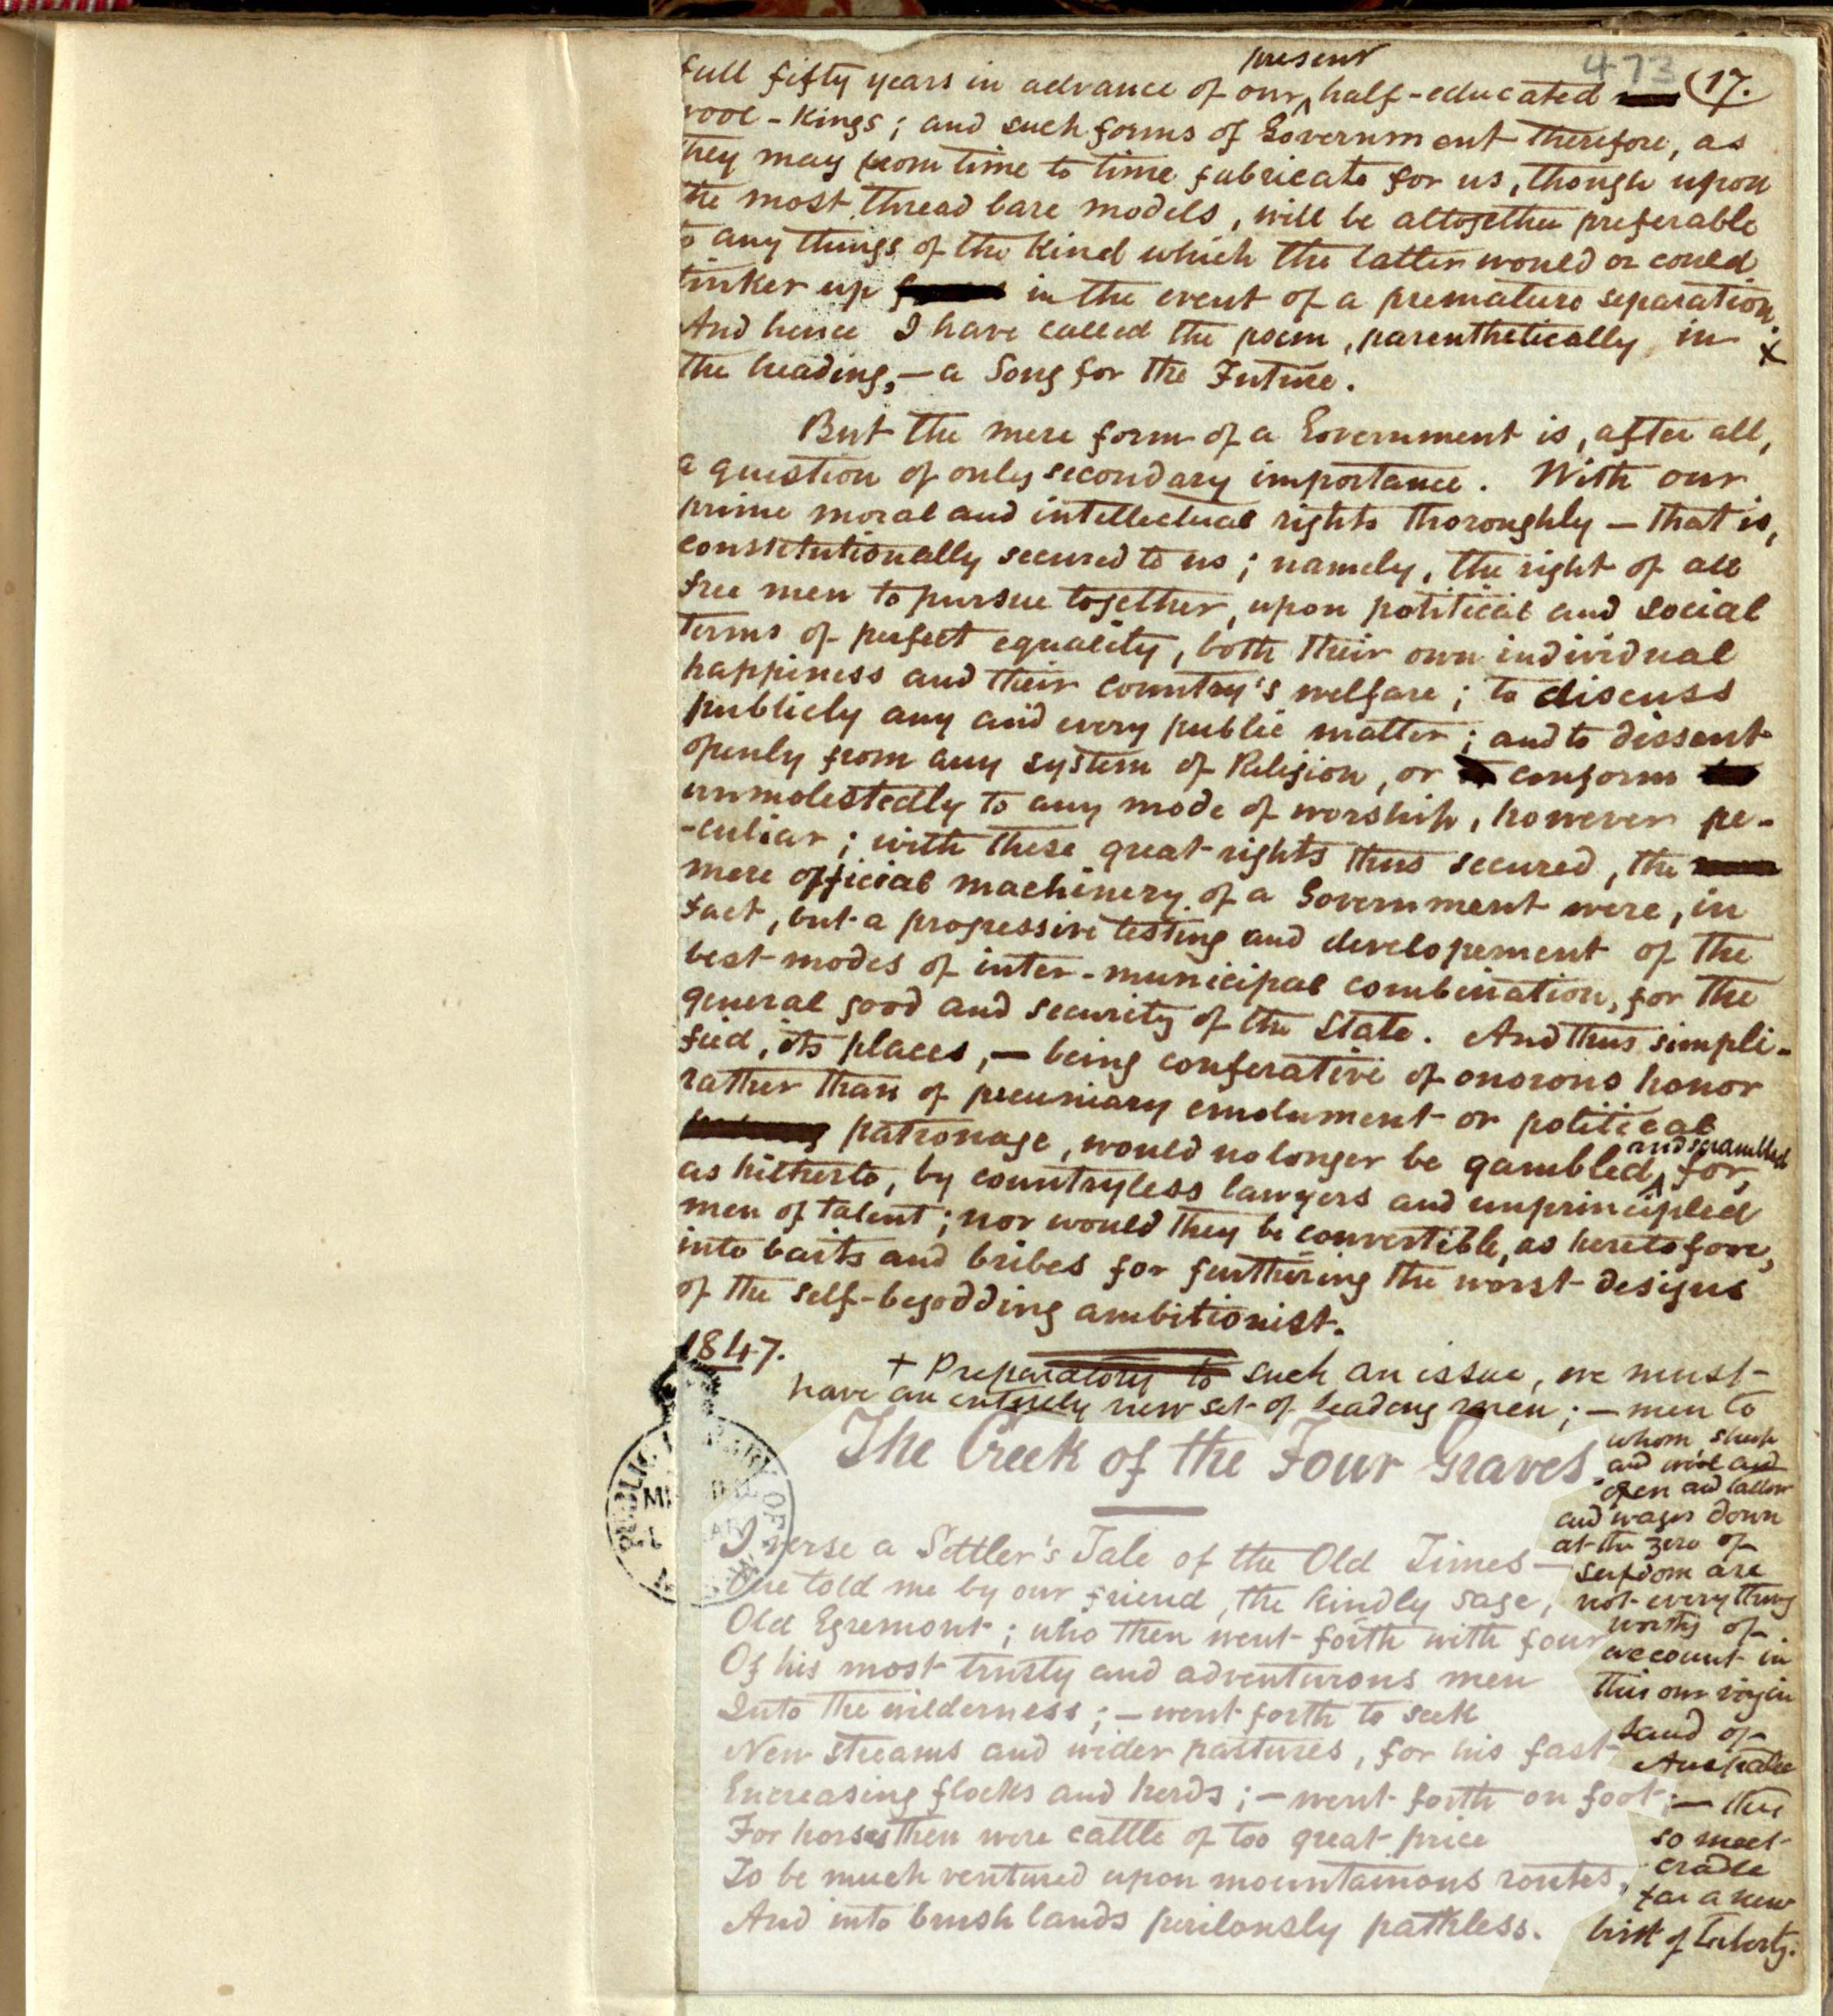 473 (17.
present
full fifty years in advance of our ^ half-educated
wool-kings; and such forms of Government therefore, as
they may from time to time fabricate for us, though upon
the most thread bare models, will be altogether preferable
to any things of the kind which the latter would or could
tinker up in the event of a premature separation.
And hence I have called the poem, parenthetically, in x
the heading,—a Song for the Future.
But the mere form of a Government is, after all,
a question of only secondary importance. With our
prime moral and intellectual rights thoroughly — that is,
constitutionally secured to us; namely, the right of all
free men to pursue together, upon political and social
terms of perfect equality, both their own individual
happiness and their country's welfare; to discuss
publicly any and every public matter; and to dissent
openly from any system of Religion, or conform
unmolestedly to any mode of worship, however pe-
-culiar; with these great rights thus secured, the
mere official machinery of a Government were, in
fact, but a progressive testing and developement of the
best modes of inter-municipal combination, for the
general good and security of the State. And thus simpli-
fied, its places,— being conferative of onorous honor
rather than of pecuniary emolument or political
patronage, would no longer be gambled ^ and scrambled for,
as hitherto, by countryless lawyers and unprincipled
men of talent; nor would they be convertible, as heretofore,
into baits and bribes for furthering the worst designs
of the self-begodding ambitionist.
1847.
+ Preparatory to such an issue, we must
have an entirely new set of leading men; — men to
whom sheep
and wool and
open and tallow
and wages down
at the zero of
serfdom are
not every thing
worthy of
account in
this our virgin
land of
Australia
— this
so meet
cradle
for a new
birth of Liberty.
The Creek of the Four Graves.
I verse a Settler's Tale of the Old Times—
One told me by our friend, the kindly sage,
Old Egremont; who then went forth with four
Of his most trusty and adventurous men
Into the wilderness;—went forth to seek
New streams and wider pastures, for his fast
Encreasing flocks and herds;—went forth on foot;
For horses then were cattle of too great price
To be much ventured upon mountainous routes,
And into brush lands perilously pathless.
PUBLIC LIBRARY OF